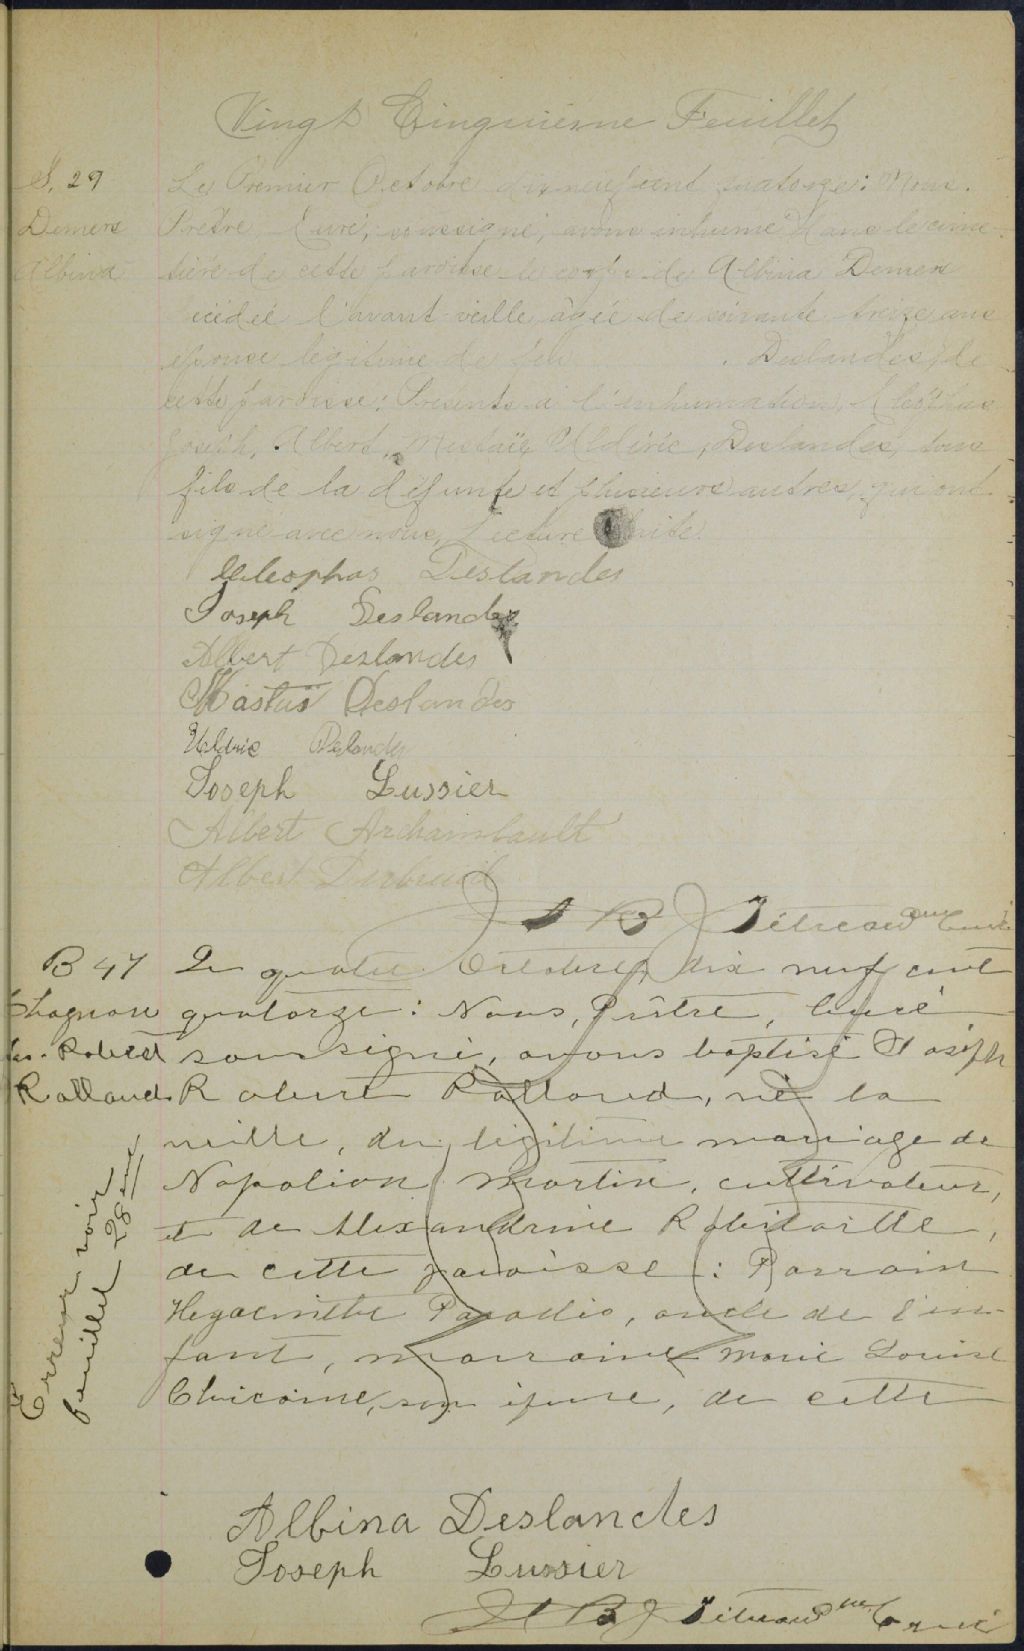 Vingt Cinquième Feuillet
S. 29
Demers
Albina
Le Premier Octobre dix neuf cent quatorze: Nous,
Prêtre Curé, soussigné, avons inhumé dans le cime-
tière de cette paroisse le corps de Albina Demers
décédée l'avant veille âgée de soixante treize ans
épouse légitime de feu . Deslandes, de
cette paroisse: Présents à l'inhumation, Cléophas
Joseph, Albert, Mastaï, Uldéric, Deslandes, tous
fils de la défunte et plusieurs autres, qui ont
signé avec nous, Lecture faite.
Cleophas Deslandes
Joseph Deslandes
Albert Deslandes
Mastaï Deslandes
Uldric Deslandes
Joseph Lussier
Albert Archambault
Albert
J B J Tétreau ptre Curé
B 47
Chagnon
Jos. Robert
Rolland
Le quatre Octobre dix neuf cent
quatorze: Nous, Prêtre, Curé
soussigné, avons baptisé Joseph
Robert Rolland, né la
veille, du légitime mariage de
Napoléon Martin, cultivateur,
et de Alexandrine Robitaille,
de cette paroisse: Parrain
Hyacinthe Paradis, oncle de l'en-
fant, marraine Marie Louise
Chicoine, son épouse, de cette
Erreur voir
feuillet 28
Albina Deslandes
Joseph Lussier
J B J Tétreau ptre Curé